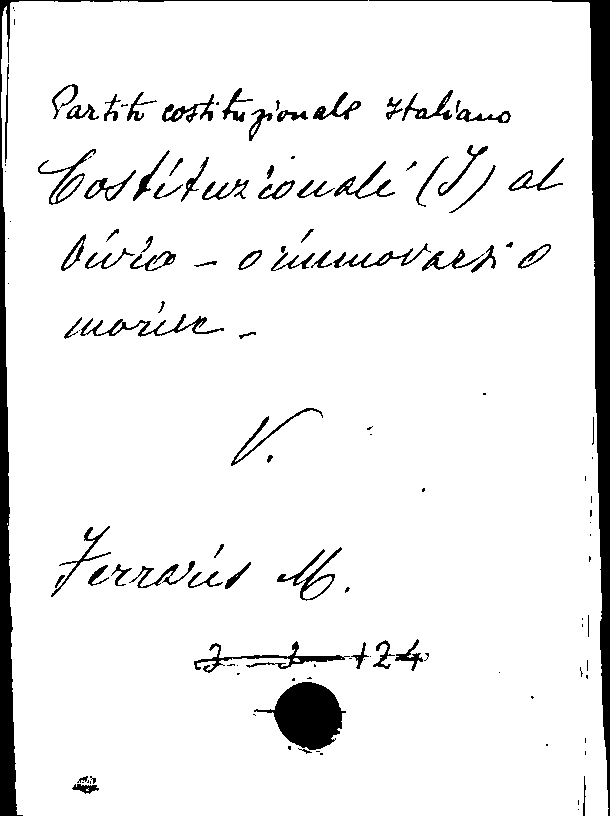 Partito costituzionale Italiano
Costituzionali (I) al
bivio - o rinnovarsi o
morire -
V.
Ferraris M.
3 - 3 - 124